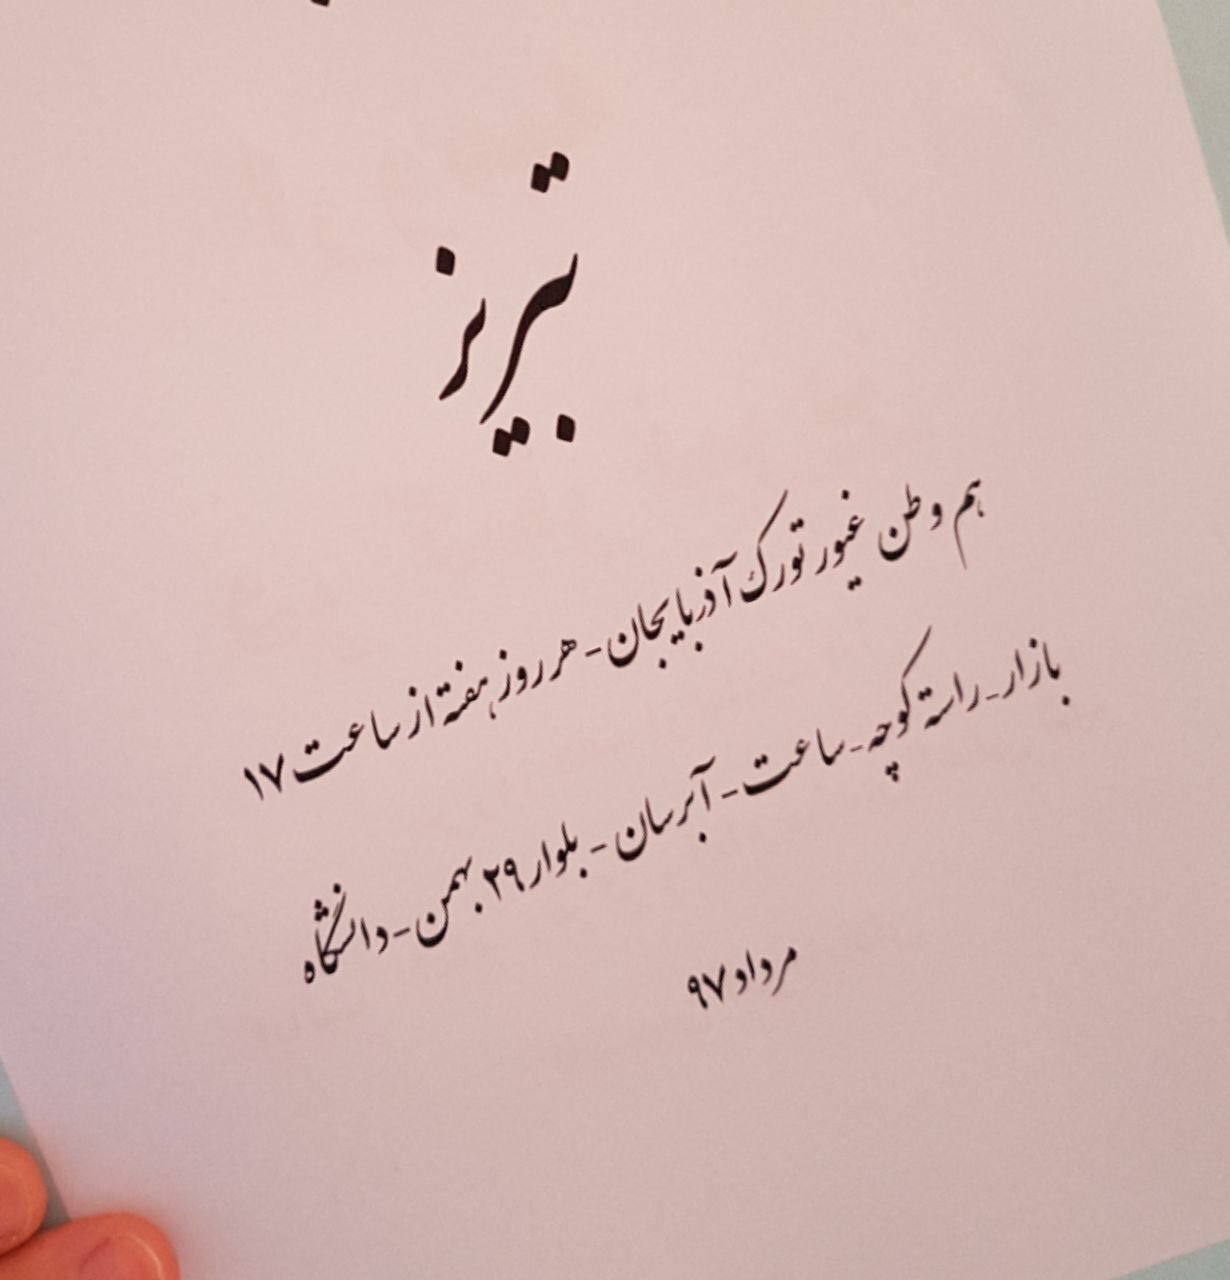 تبریز
هم وطن غیور تورک آذربایجان - هر روز هفته از ساعت ۱۷
بازار - راسته کوچه - ساعت - آبرسان - بلوار ۲۹ بهمن - دانشگاه
مرداد ۹۷